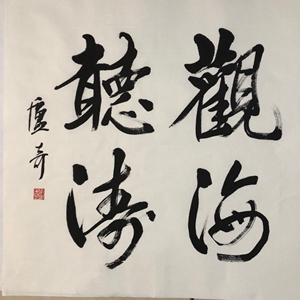 觀海
聽濤
盧奇